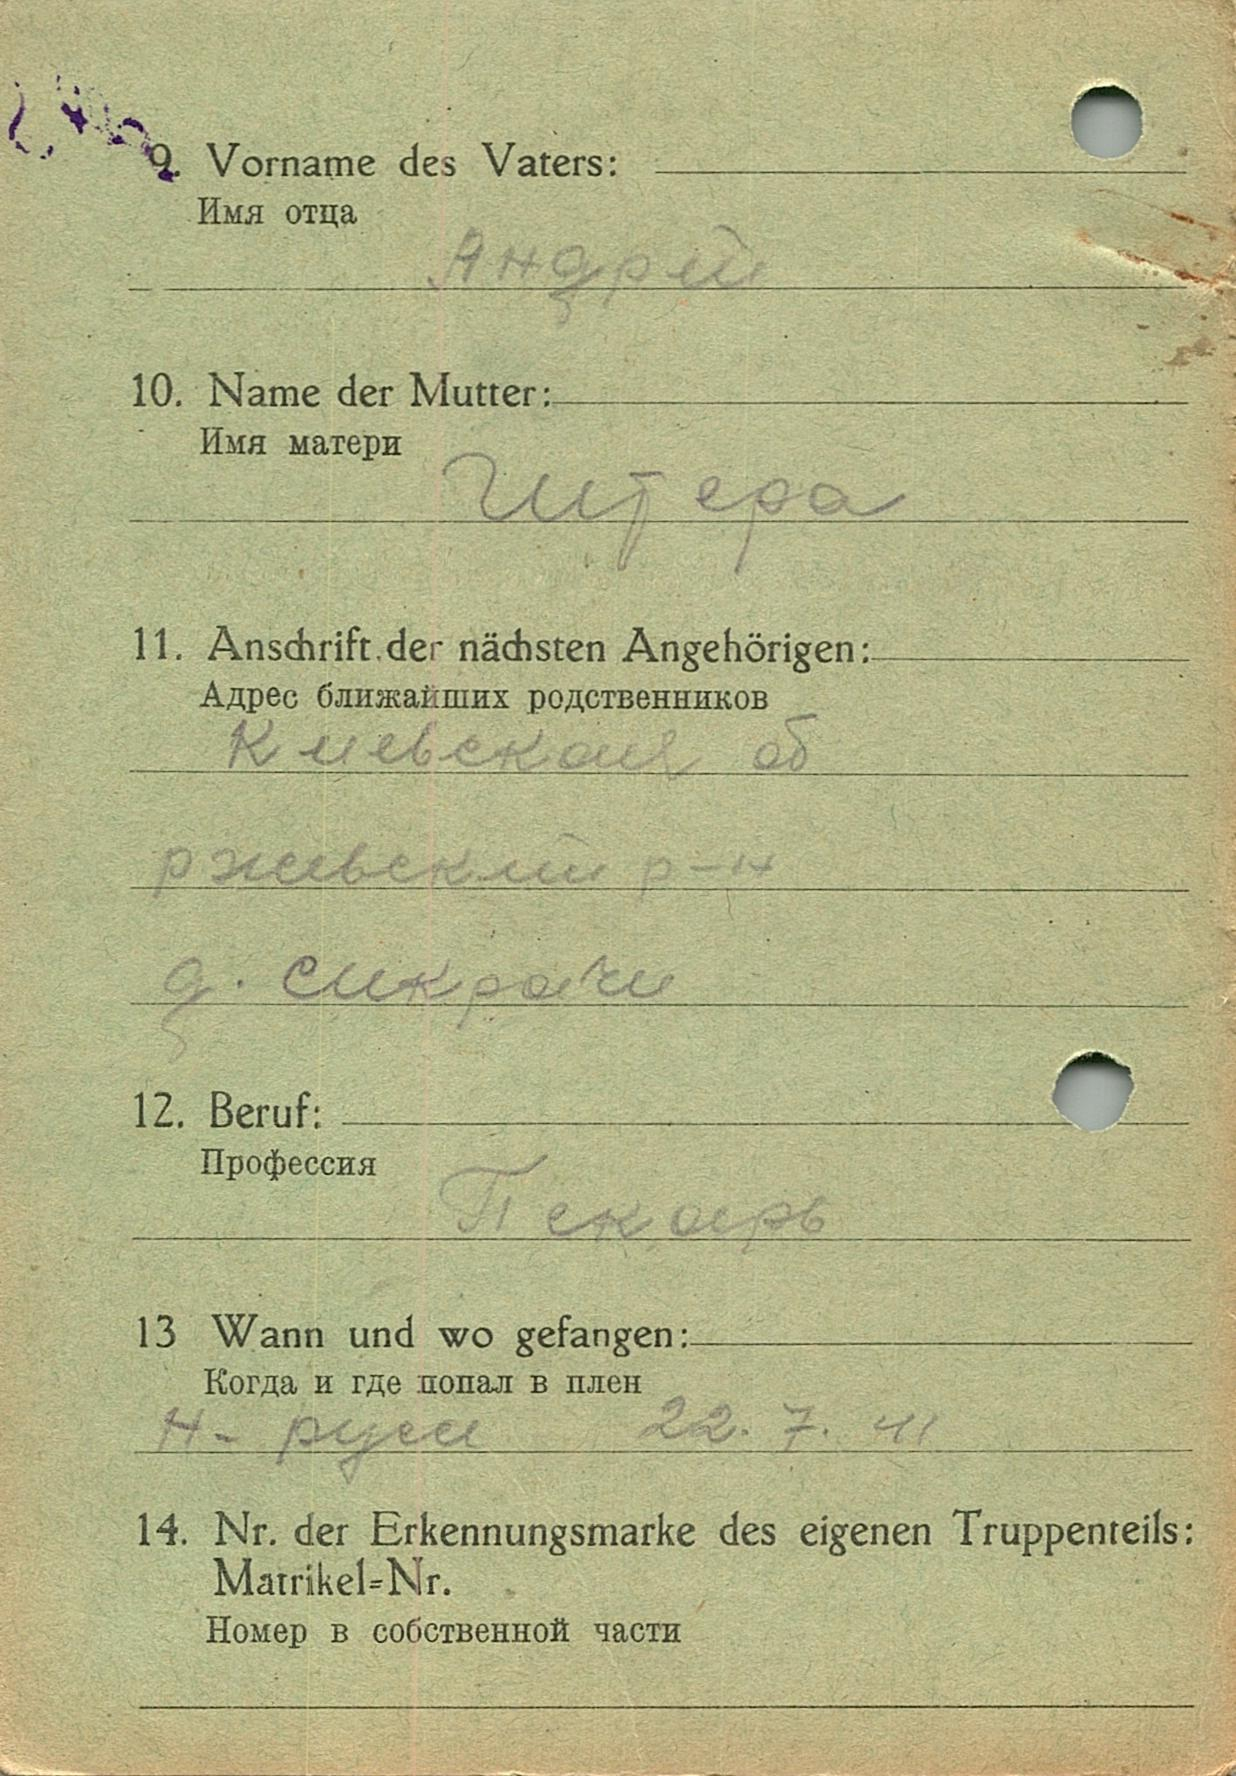 9. Vorname des Vaters:
Имя отца
Андрей
10. Name der Mutter:
Имя матери
Штера
11. Anschrift der nächsten Angehörigen:
Адрес ближайших родственников
Киевская об
ржевский р-н
д. сикрачи
12. Beruf:
Профессия
Пекарь
13 Wann und wo gefangen:
Когда и где попал в плен
22. 7. 41
14. Nr. der Erkennungsmarke des eigenen Truppenteils:
Matrikel=Nr.
Номер в собственной части